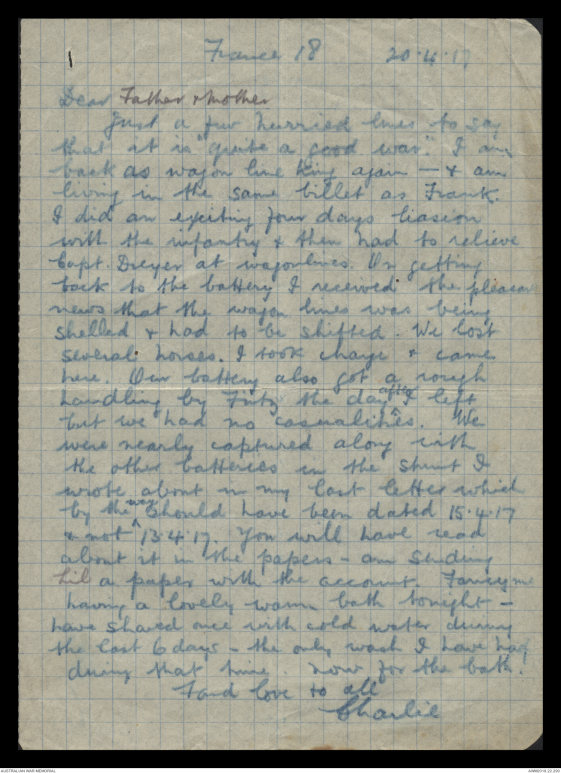 France 18 20.4.17
Dear Father & Mother
Just a few hurried lines to say
that it is "quite a good war". I am
back as wagon line King again — & am
living in the same billet as Frank.
I did an exciting four days liaseon
with the infantry & then had to relieve
Capt. Dreyer at wagonlines. On getting
back to the battery I received the pleasant
news that the wagon lines was being
shelled & had to be shifted. We lost
several horses. I took charge & came
here. Our battery also got a rough
handling by Fritz the day after I left
but we had no casualities. We
were nearly captured along with
the other batteries in the stunt I
wrote about in my last letter which
by the way should have been dated 15.4.17
& not 13.4.17. You will have read
about it in the papers – am sending
Lil a paper with the account. Fancy me
having a lovely warm bath tonight –
have shaved once with cold water during
the last 6 days – the only wash I have had
during that time. Now for the bath.
Fond love to all
Charlie
AUSTRALIAN WAR MEMORIAL